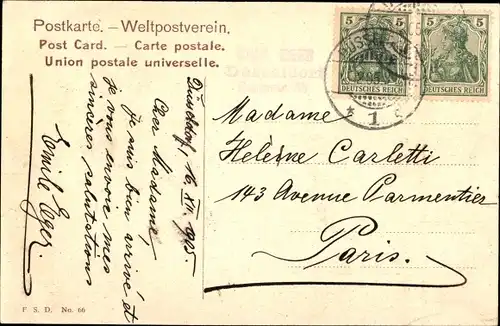 Postkarte. – Weltpostverein.
Post Card. – Carte postale.
Union postale universelle.
Düsseldorf, 16. XII. 1905.
Cher Madame,
je suis bien arrivé et
je vous envoie mes
sincères salutations
Emile Eger.
5 5
5 5
DEUTSCHES REICH
DEUTSCHES REICH
* 1 c
Madame
Helèsne Carletti
143 Avenue Parmentier
Paris.
F. S. D. No. 66